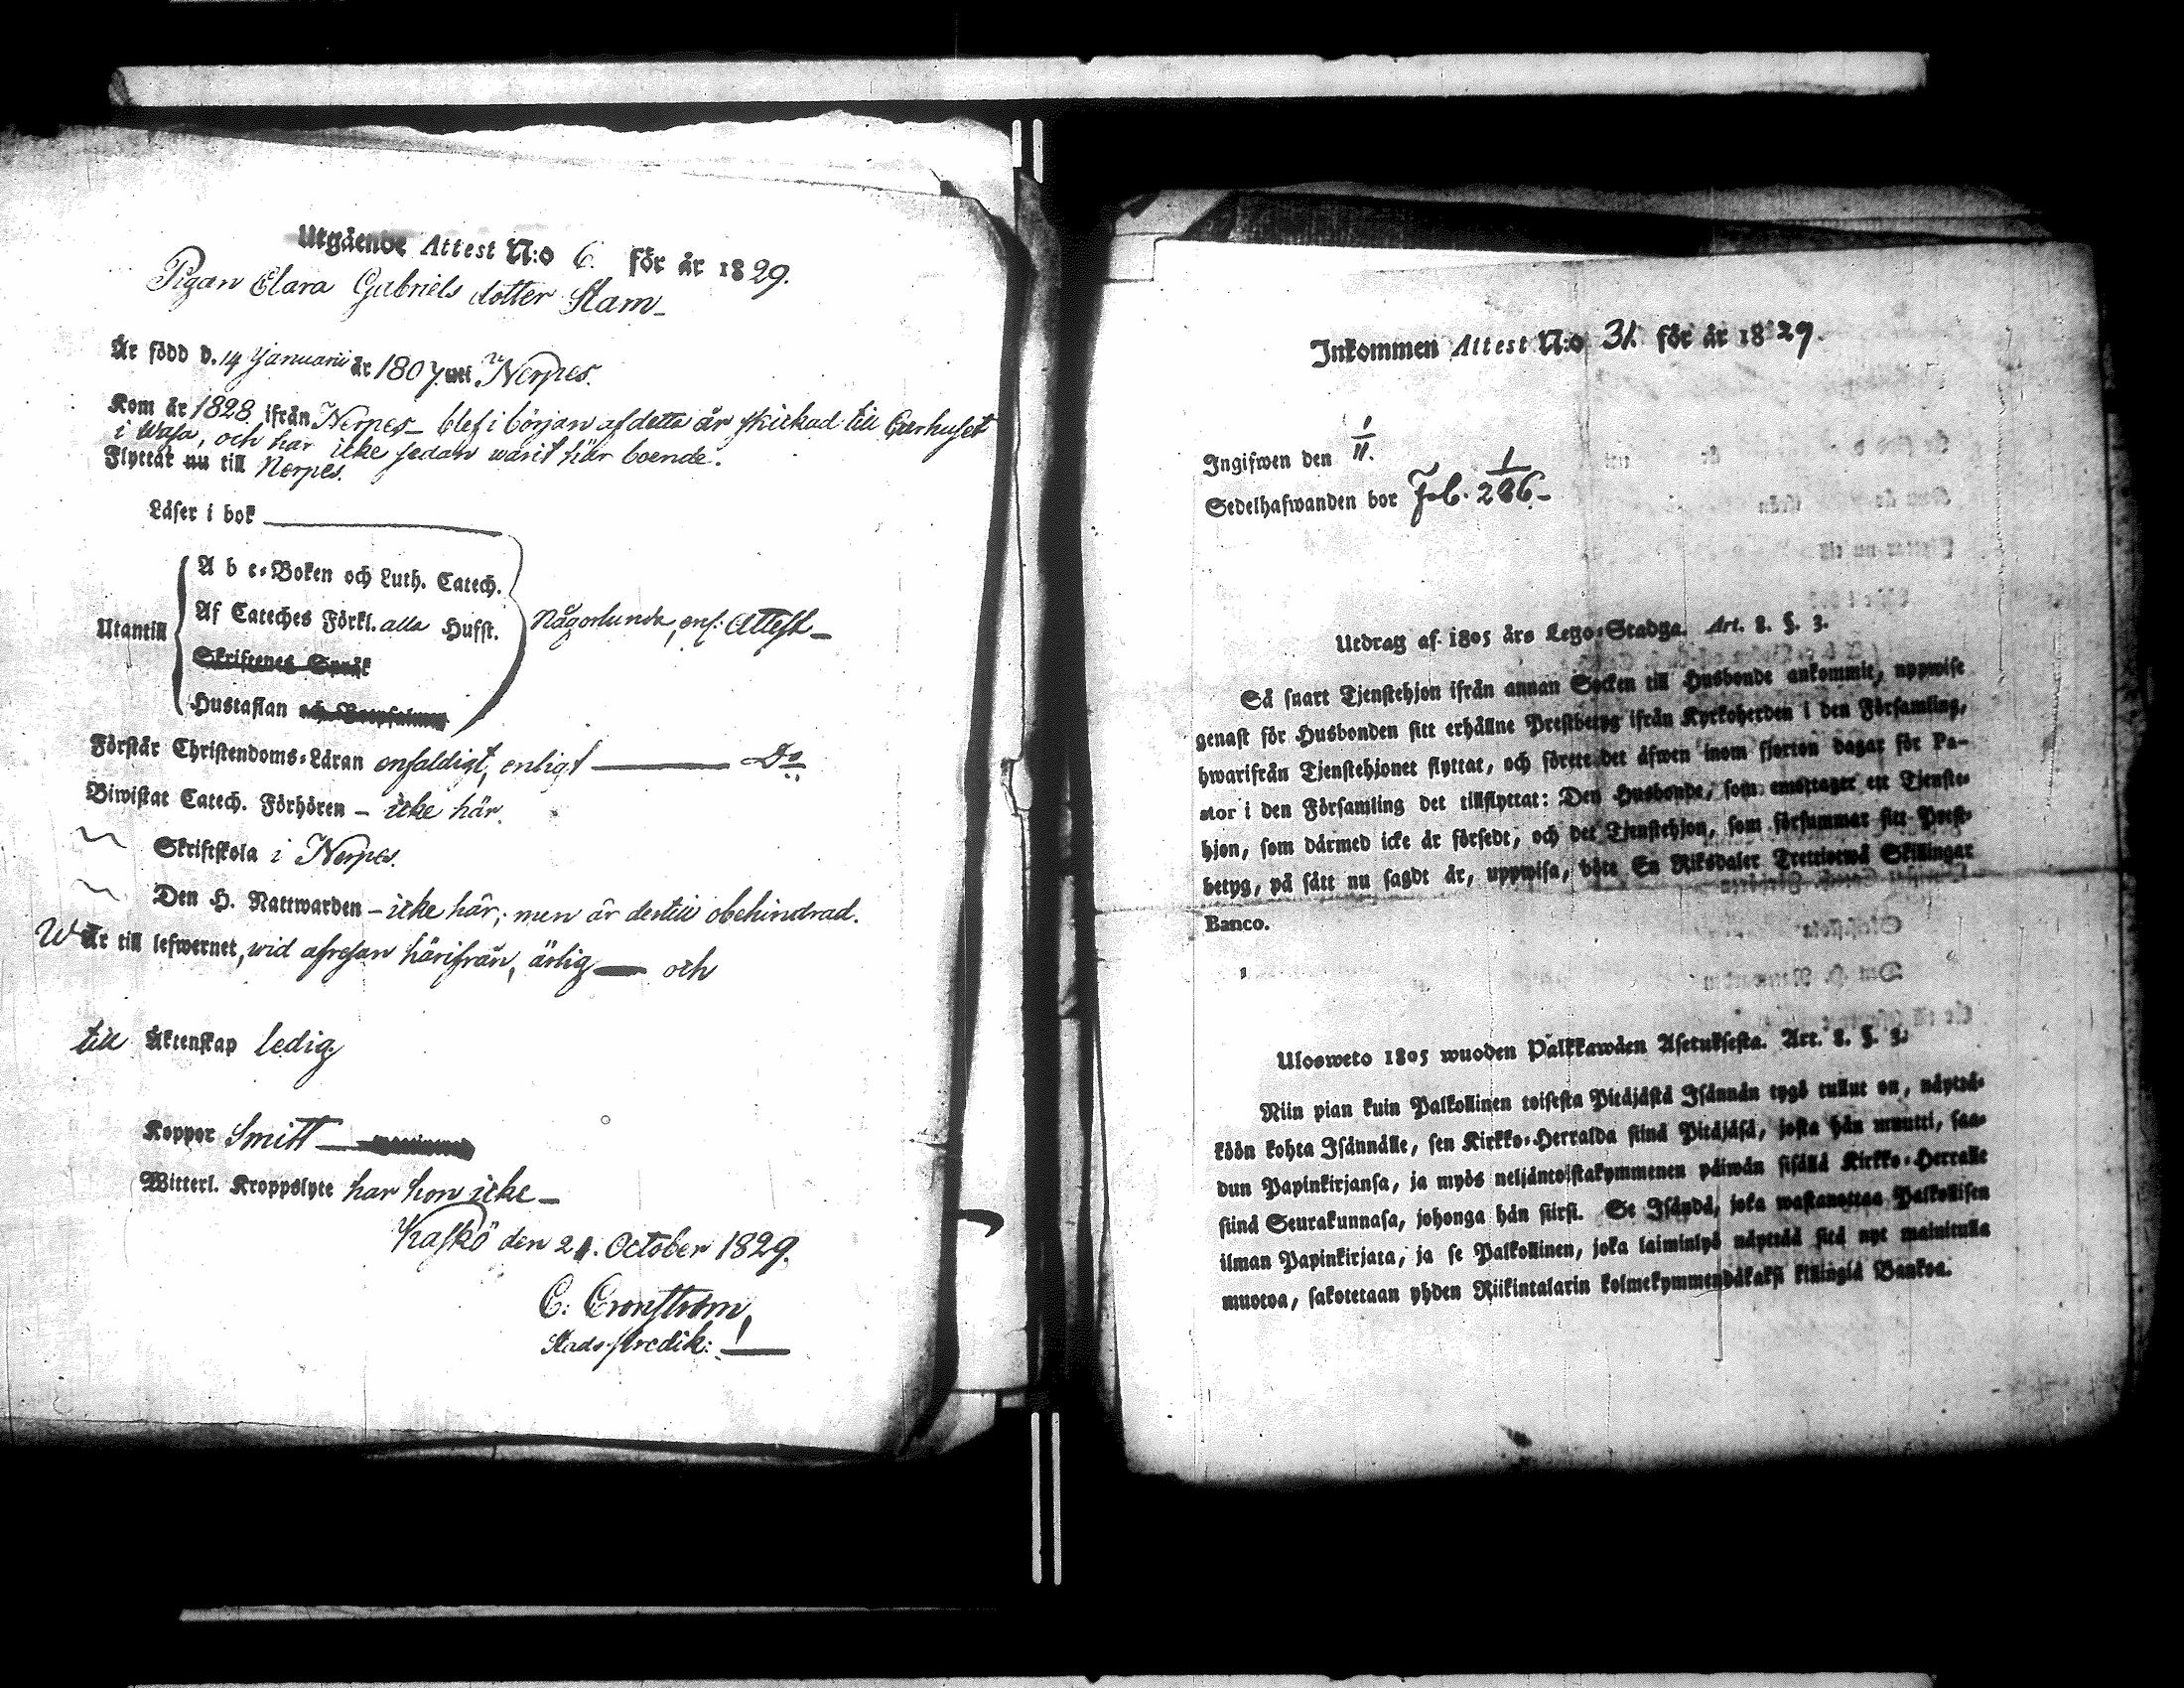 Utgående Attest N:o 6. för år 1829.
Pigan Clara Gabriels dotter Stam_
Är född d. 14 Januarii år 1807. uti Nerpes.
Kom år 1828 ifrån Nerpes_ blef i början af detta år skickad till Curhuset
i Wasa, och har icke sedan warit här boende.
Flyttar nu till Nerpes.
Läser i bok
A b c-Boken och Luth. Catech.
Af Cateches Förkl. alla Husst.
Utantill
Någorlunda, enl: Attest_
Skriftenes Språk
Hustaflan och
Förstår Christendoms-Läran enfaldigt, enligt — Do
Biwistat Catech. Förhören – icke här.
Skriftskola i Nerpes.
Den H. Nattwarden – icke här; men är dertill obehindrad.
Är till lefwernet, wid afresan härifrån, ärlig — och
till Äktenskap ledig.
Koppor Smitt
Witterl. Kroppslyte har hon icke_
Kaskö den 21. October 1829.
C: Cronström,
Stads-predik:
Inkommen Attest N:o 31. för år 1829.
Ingifwen den 1/11.
Sedelhafwanden bor
Utdrag af 1805 års Lego-Stadga. Art. 8. §. 3.
Så snart Tjenstehjon ifrån annan Socken till Husbonde ankommit, uppwise
genast för Husbonden sitt erhållne Prestbetyg ifrån Kyrkoherden i den Församling,
hwarifrån Tjenstehjonet flyttat, och förete det äfwen inom fjorton dagar för Pa-
stor i den Församling det tillflyttat: Den Husbonde, som emottager ett Tjenste-
hjon, som därmed icke är försedt, och det Tjenstehjon, som försummar sitt Prest-
betyg, på sätt nu sagdt är, uppwisa, böte En Riksdaler Trettiotwå Skillingar
Banco.
Ulosweto 1805 wuoden Palkkawäen Asetuksesta. Art. 8. §. 3.
Niin pian kuin Palkollinen toisesta Pitäjästä Isännän tygö tullut on, näyttä-
köön kohta Isännälle, sen Kirkko-Herralda siinä Pitäjäsä, josta hän muutti, saa-
dun Papinkirjansa, ja myös neljäntoistakymmenen päiwän sisällä Kirkko-Herralle
siinä Seurakunnasa, johonga hän siirsi. Se Isändä, joka wastanottaa Palkollisen
ilman Papinkirjata, ja se Palkollinen, joka laiminlyö näyttää sitä nyt mainitulla
muotoa, sakotetaan yhden Riikintalarin kolmekymmendäkaksi killingiä Bankoa.